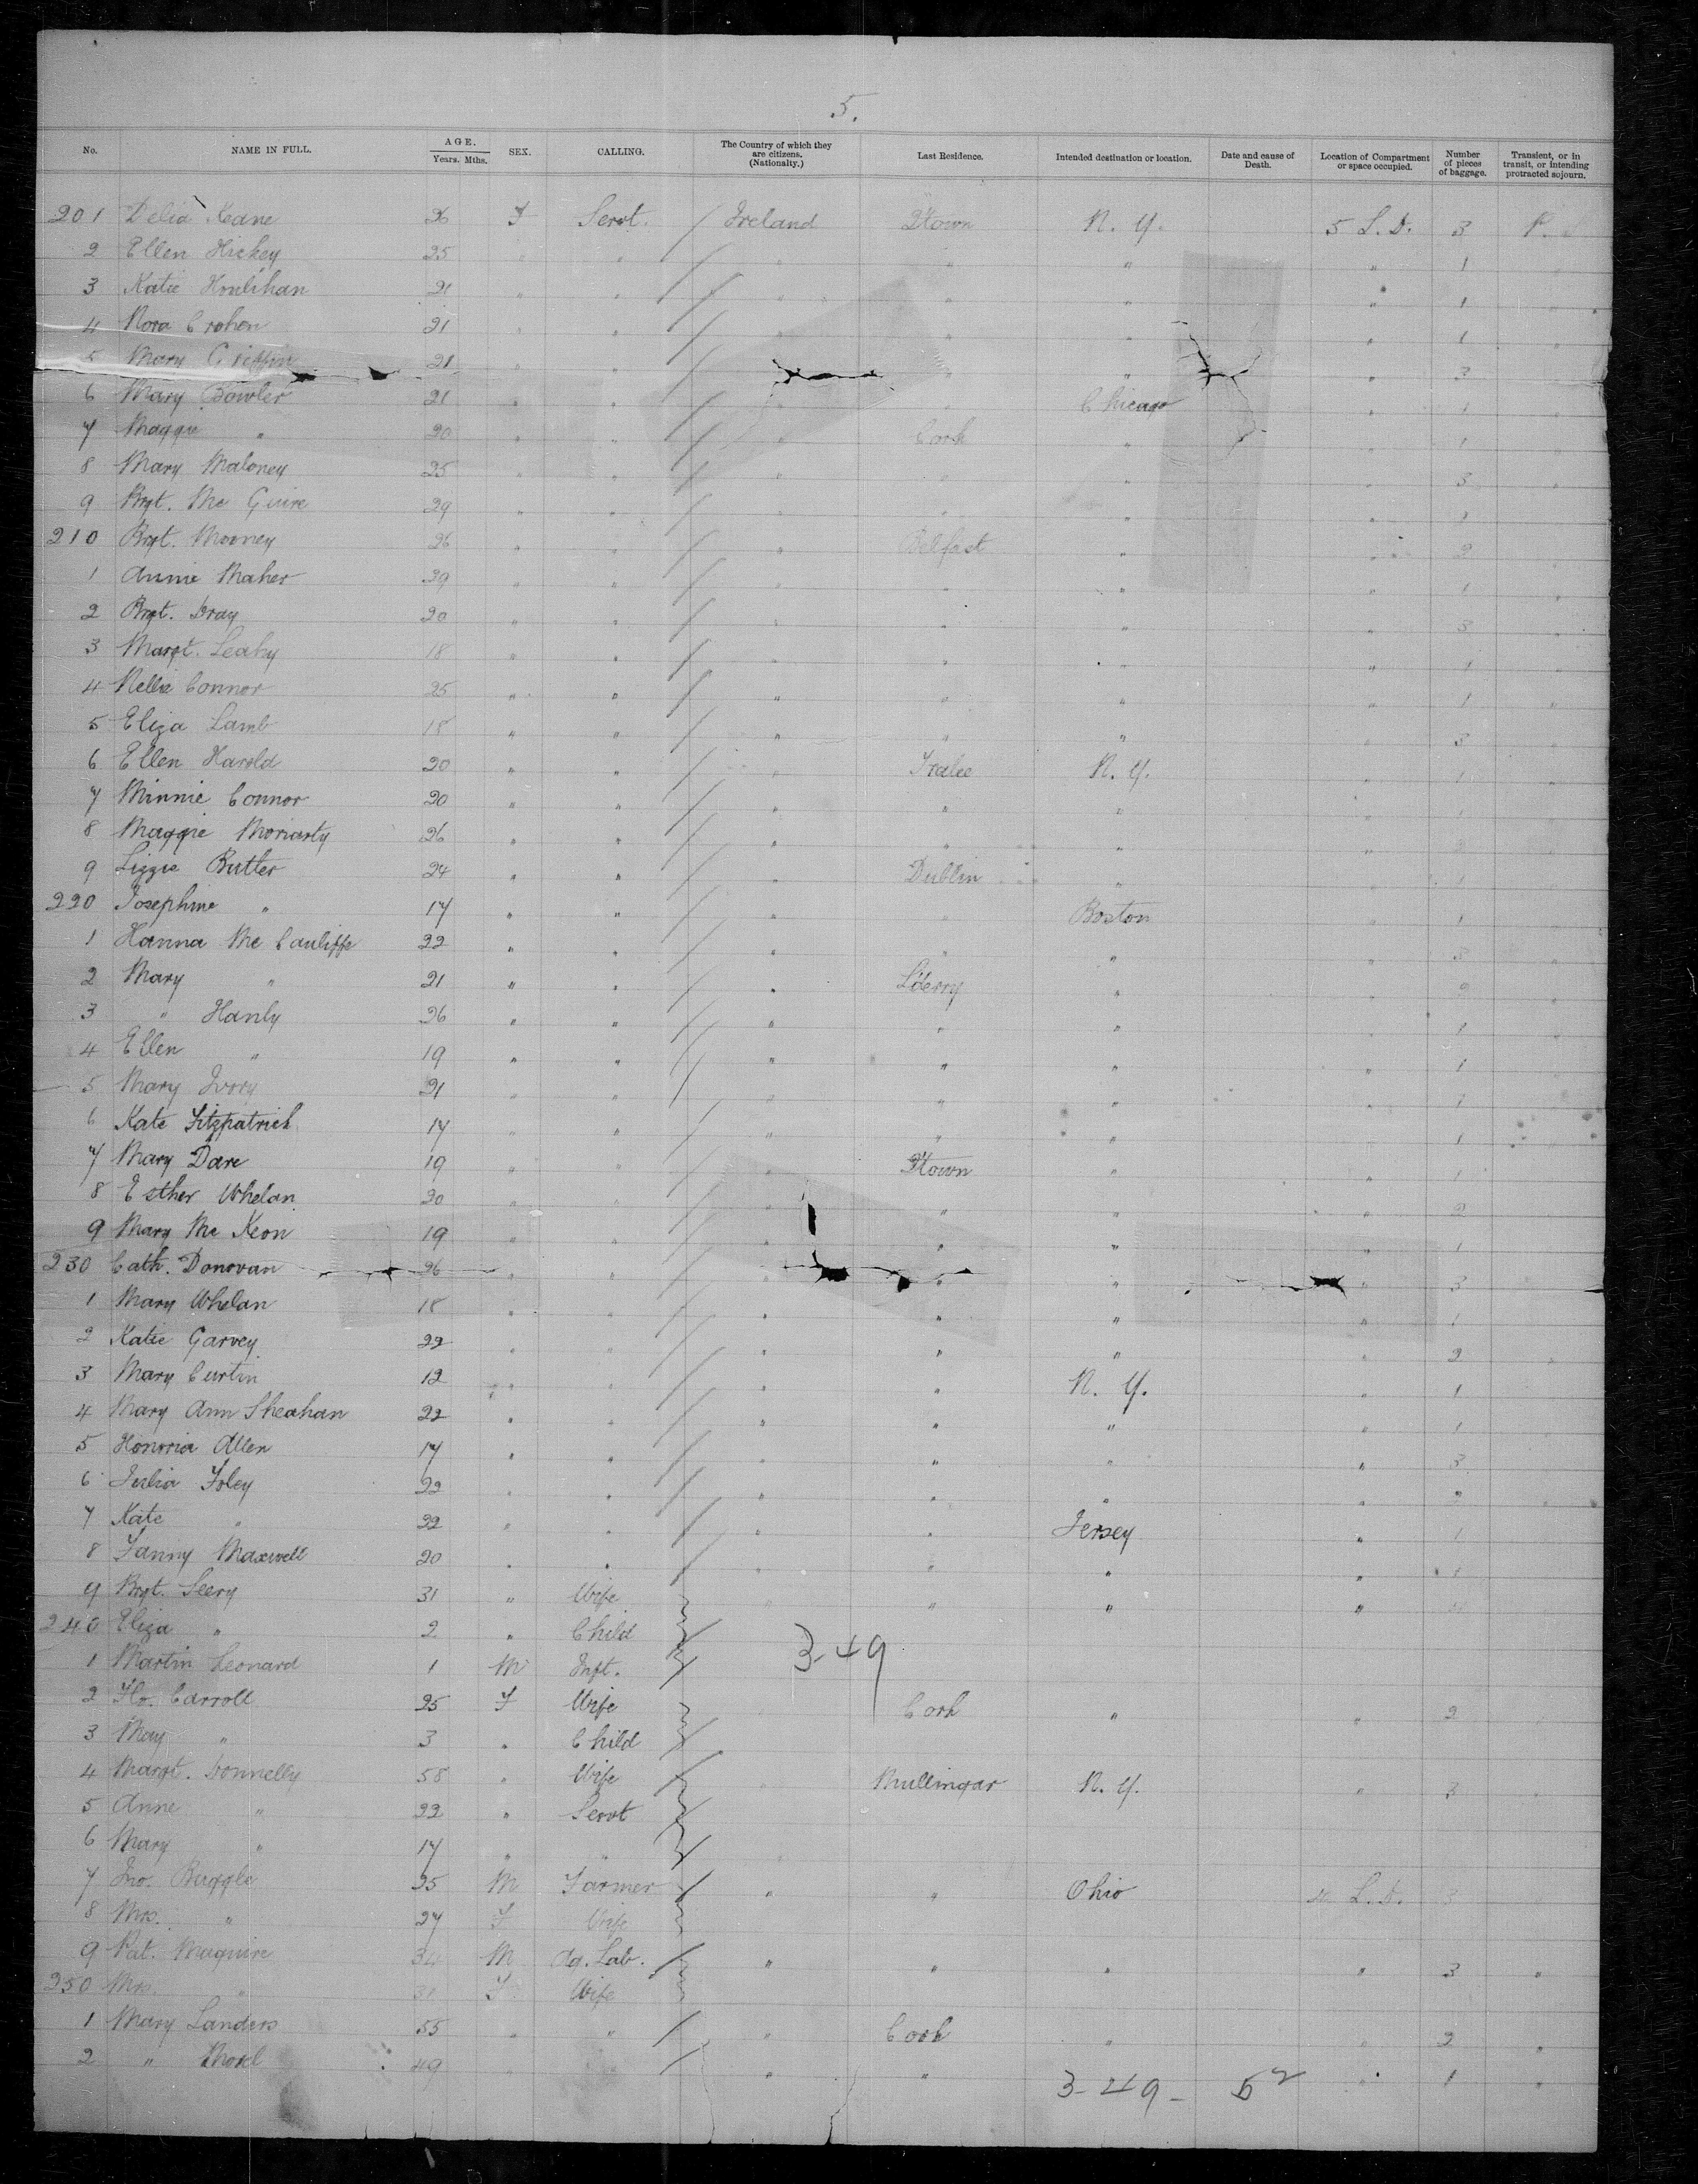 5.
No. NAME IN FULL. AGE. Years. Mths. SEX. CALLING. The Country of which they are citizens. (Nationality.) Last Residence. Intended destination or location. Date and cause of Death. Location of Compartment or space occupied. Number of pieces of baggage. Transient, or in transit, or intending protracted sojourn.
201 Delia Keane 26 F Servt. / Ireland Qtown N. Y. 5 L.D. 3 P.
2 Ellen Hickey 25 " " / " " " " 1 "
3 Katie Houlihan 21 " " / " " " " 1 "
4 Nora Crohen 21 " " / " " " " 1 "
5 Mary Griffin 21 " " / " " " 3 "
6 Mary Bowler 21 " " / " " Chicago " 1 "
7 Maggie " 20 " " / " Cork " " 1 "
8 Mary Maloney 25 " " / " " " " 3 "
9 Brgt. Mc Guire 29 " " / " " " " 1 "
210 Brgt. Mooney 26 " " / " Belfast " " 2 "
1 Annie Maher 39 " " / " " " " 1 "
2 Brgt. Dray 20 " " / " " " " 3 "
3 Margt. Leahy 18 " " / " " " " 1 "
4 Nellie Connor 25 " " / " " " " 1 "
5 Eliza Lamb 18 " " / " " " " 3 "
6 Ellen Harold 20 " " / " Tralee N. Y. " 1 "
7 Minnie Connor 20 " " / " " " " 1 "
8 Maggie Moriarty 26 " " / " " " " 2 "
9 Lizzie Butler 24 " " / " Dublin " " 1 "
220 Josephine " 17 " " / " " Boston " 1 "
1 Hanna Mc Cauliffe 22 " " / " " " " 3 "
2 Mary " 21 " " / " L'derry " " 2 "
3 " Hanly 26 " " / " " " " 1 "
4 Ellen " 19 " " / " " " " 1 "
5 Mary Ivory 21 " " / " " " " 1 "
6 Kate Fitzpatrick 17 " " / " " " " 1 "
7 Mary Dare 19 " " / " Qtown " " 1 "
8 Esther Whelan 20 " " / " " " " 2 "
9 Mary Mc Keon 19 " " / " " " " 1 "
230 Cath. Donovan 26 " " / " " " " 3 "
1 Mary Whelan 18 " " / " " " " 1 "
2 Katie Garvey 22 " " / " " " " 2 "
3 Mary Curtin 12 " " / " " N. Y. " 1
4 Mary Ann Sheahan 22 " " / " " " " 1
5 Honoria Allen 17 " " / " " " " 3
6 Julia Foley 22 " " / " " " " 2 "
7 Kate " 22 " " / " " Jersey " 1
8 Fanny Maxwell 20 " " / " " " " 1
9 Brgt. Seery 31 " Wife " " " "
240 Eliza " 2 " Child / 3-49
1 Martin Leonard 1 M Inft. /
2 Flo. Carroll 25 F Wife Cork " " 2
3 May " 3 " Child /
4 Margt. Donnelly 58 " Wife / " Mullingar N. Y. " 3 "
5 Anne " 22 " Servt /
6 Mary " 17 " " /
7 Jno. Buggle 25 M Farmer / " " Ohio 4 L.D. 3
8 Mrs. " 27 F Wife
9 Pat. Maguire 34 M Ag. Lab. / " " " " 3 "
250 Mrs. " 31 F Wife
1 Mary Landers 55 " " / " Cork " " 2 "
2 " 49 " " / " " " 1 "
3-49- 52